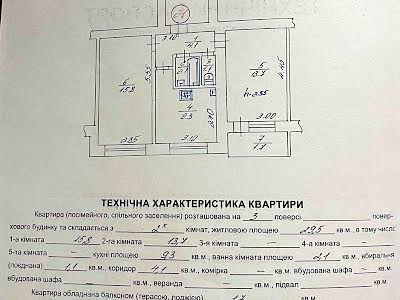 21
3.10
1
4.1
6
15.8
5.55
2.85
2.1
4
9.3
2.90
3.10
5
13.7
h=2.55
3.00
7
1.7
ТЕХНІЧНА ХАРАКТЕРИСТИКА КВАРТИРИ
Квартира (посімейного, спільного заселення) розташована на 3 поверсі повер-
хового будинку та складається з 2х кімнат, житловою площею 29,5 кв.м., в тому числі
1-а кімната 15,8 кв.м., 2-га кімната 13,7 кв.м., 3-я кімната — кв.м., 4-а кімната —
5-та кімната — кв.м., кухні площею 9,3 кв.м., ванна кімната площею 2,1 кв.м., вбиральня
(поєднана) 1,1 кв.м., коридор 4,1 кв.м., комірка — кв.м., вбудована шафа — кв.м.
вбудована шафа — кв.м., веранда — кв.м.
Квартира обладнана балконом (терасою, лоджією) 1,7 кв.м.